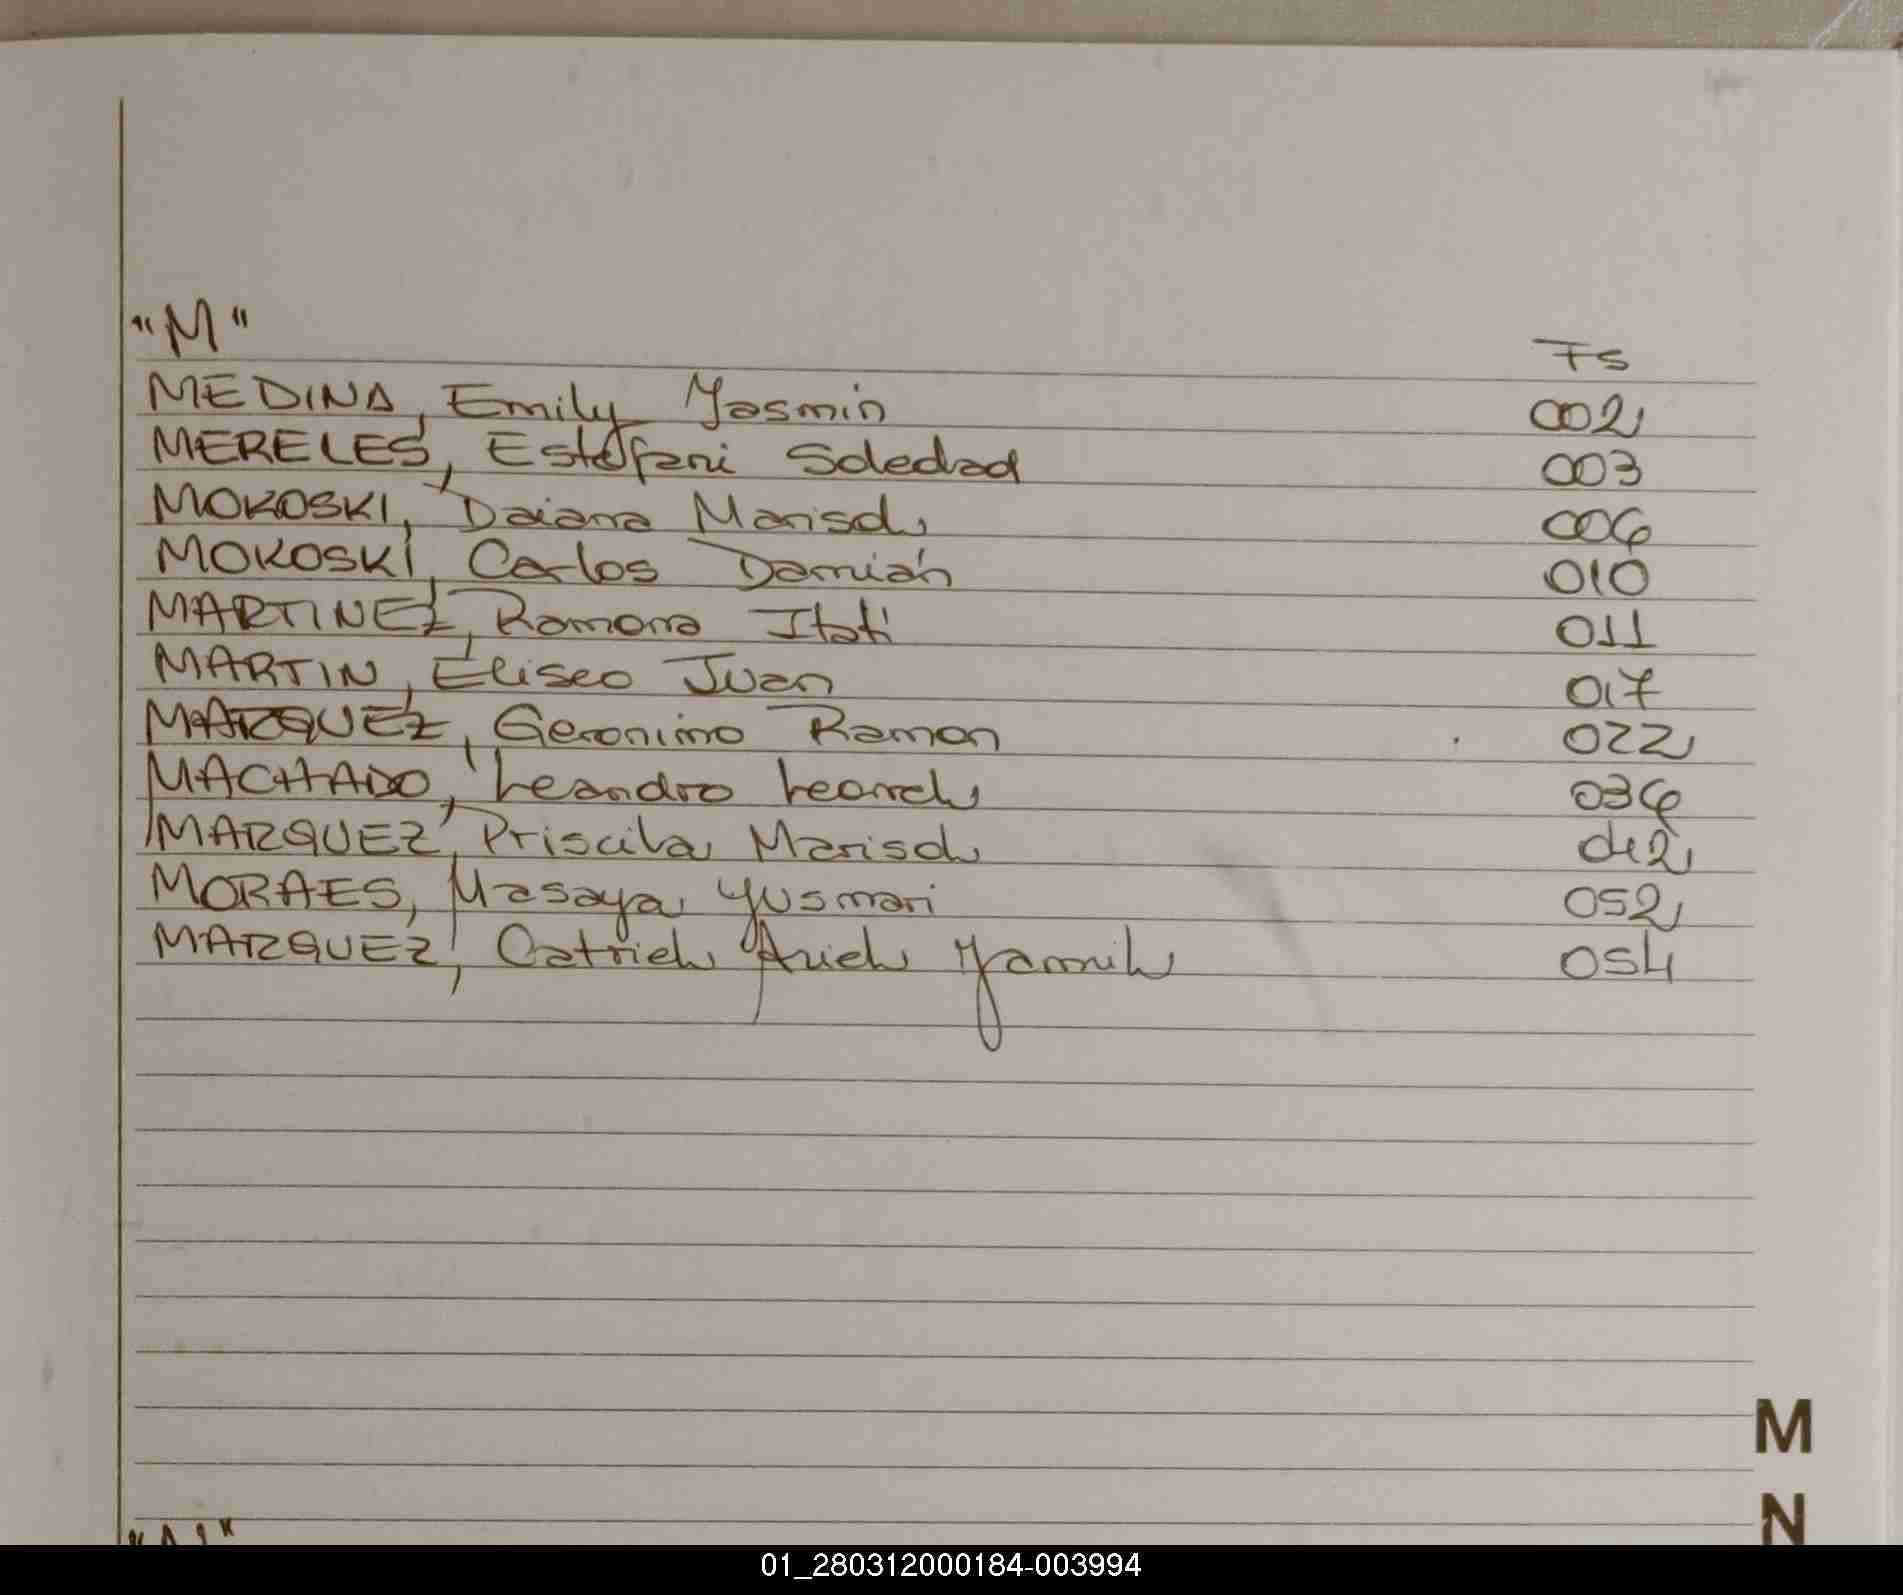 "M"
Fs
MEDINA, Emily Yasmin 002
MERELES, Estefani Soledad 003
MOKOSKI, Daiana Marisol 006
MOKOSKI, Carlos Damián 010
MARTINEZ, Ramona Itatí 011
MARTIN, Eliseo Juan 017
MARQUEZ, Geronimo Ramon 022
MACHADO, Leandro Leonel 036
MARQUEZ, Priscila Marisol 042
MORAES, Masaya Yusmari 052
MARQUEZ, Catriel Ariel Yamil 054
M
N
"N"
01_280312000184-003994